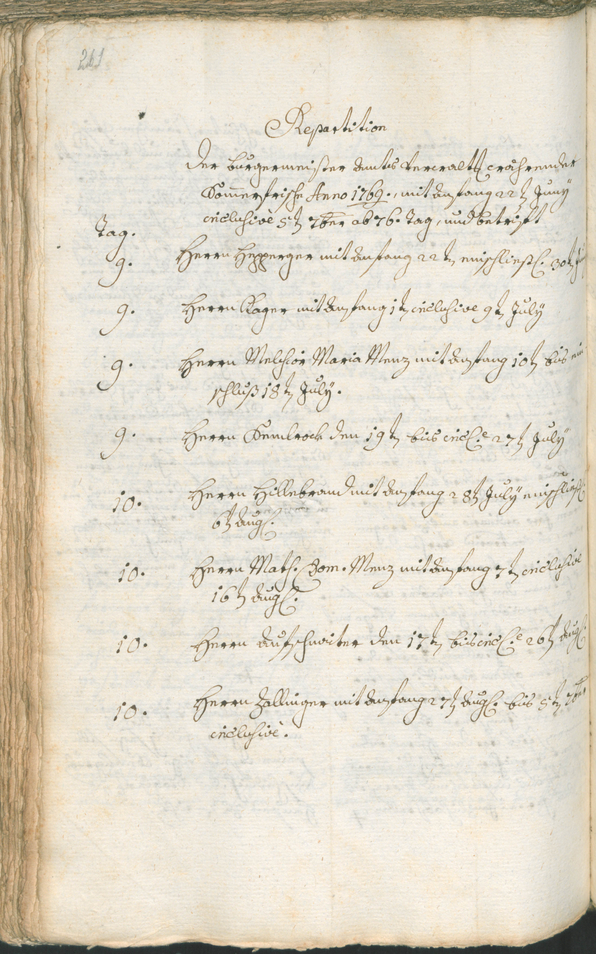 241
Repartition
der burgermeister ambts verwaltt: wehrender
Somerfrische Anno 1769. mit anfang 22t: Juny
inclusive 5t: 7ber ab 76. tag, und betrift
Tag.
9. Herrn Hepperger mit anfang 22t: einschliessl: 30t:
9. Herrn Kager mit anfang 1t: inclusive 9t: July
9. Herrn Melchior Maria Menz mit anfang 10t: bis ein
schluß 18t: July.
9. Herrn Kemlrock den 19t: bis incl:e 27t: July
10. Herrn Hillebrand mit anfang 28t: July einschliessl:
6t: aug:
10. Herrn Math: Dom: Menz mit anfang 7t: inclusive
16t: aug:
10. Herrn aufschnaiter den 17t: bis incl:e 26t: aug:
10. Herrn Zallinger mit anfang 27t: aug: bis 5t: 7ber
inclusive.